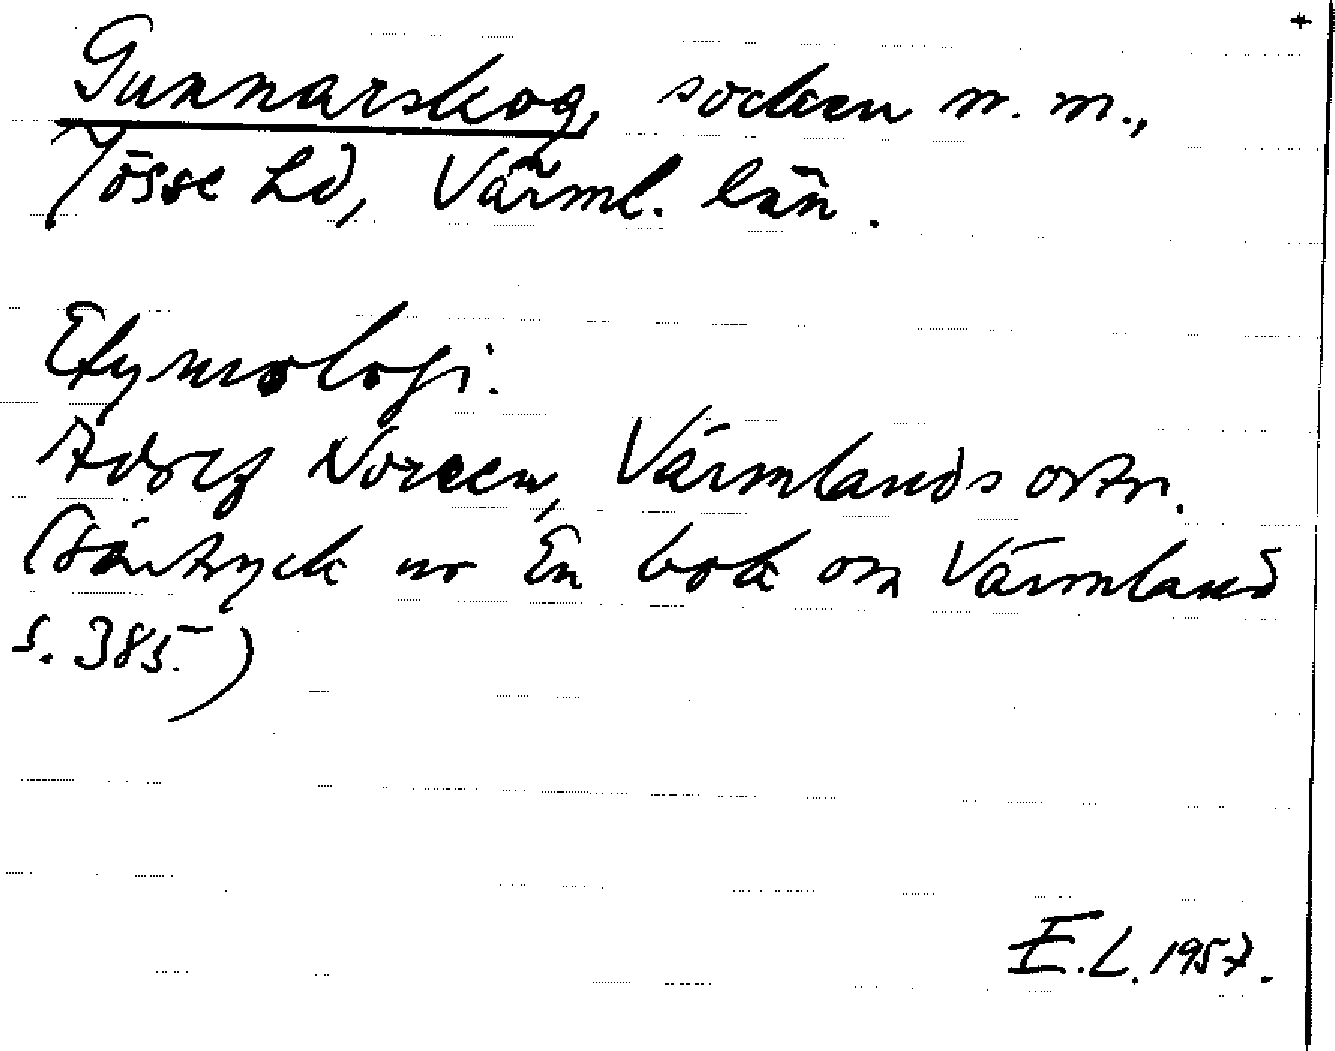 +
Gunnarskog, socken m. m.,
Jösse hd, Värml. län.
Etymologi:
Adolf Noreen, Värmlands ortn.
(Särtryck ur En bok om Värmland
s. 385.)
E.L. 1957.